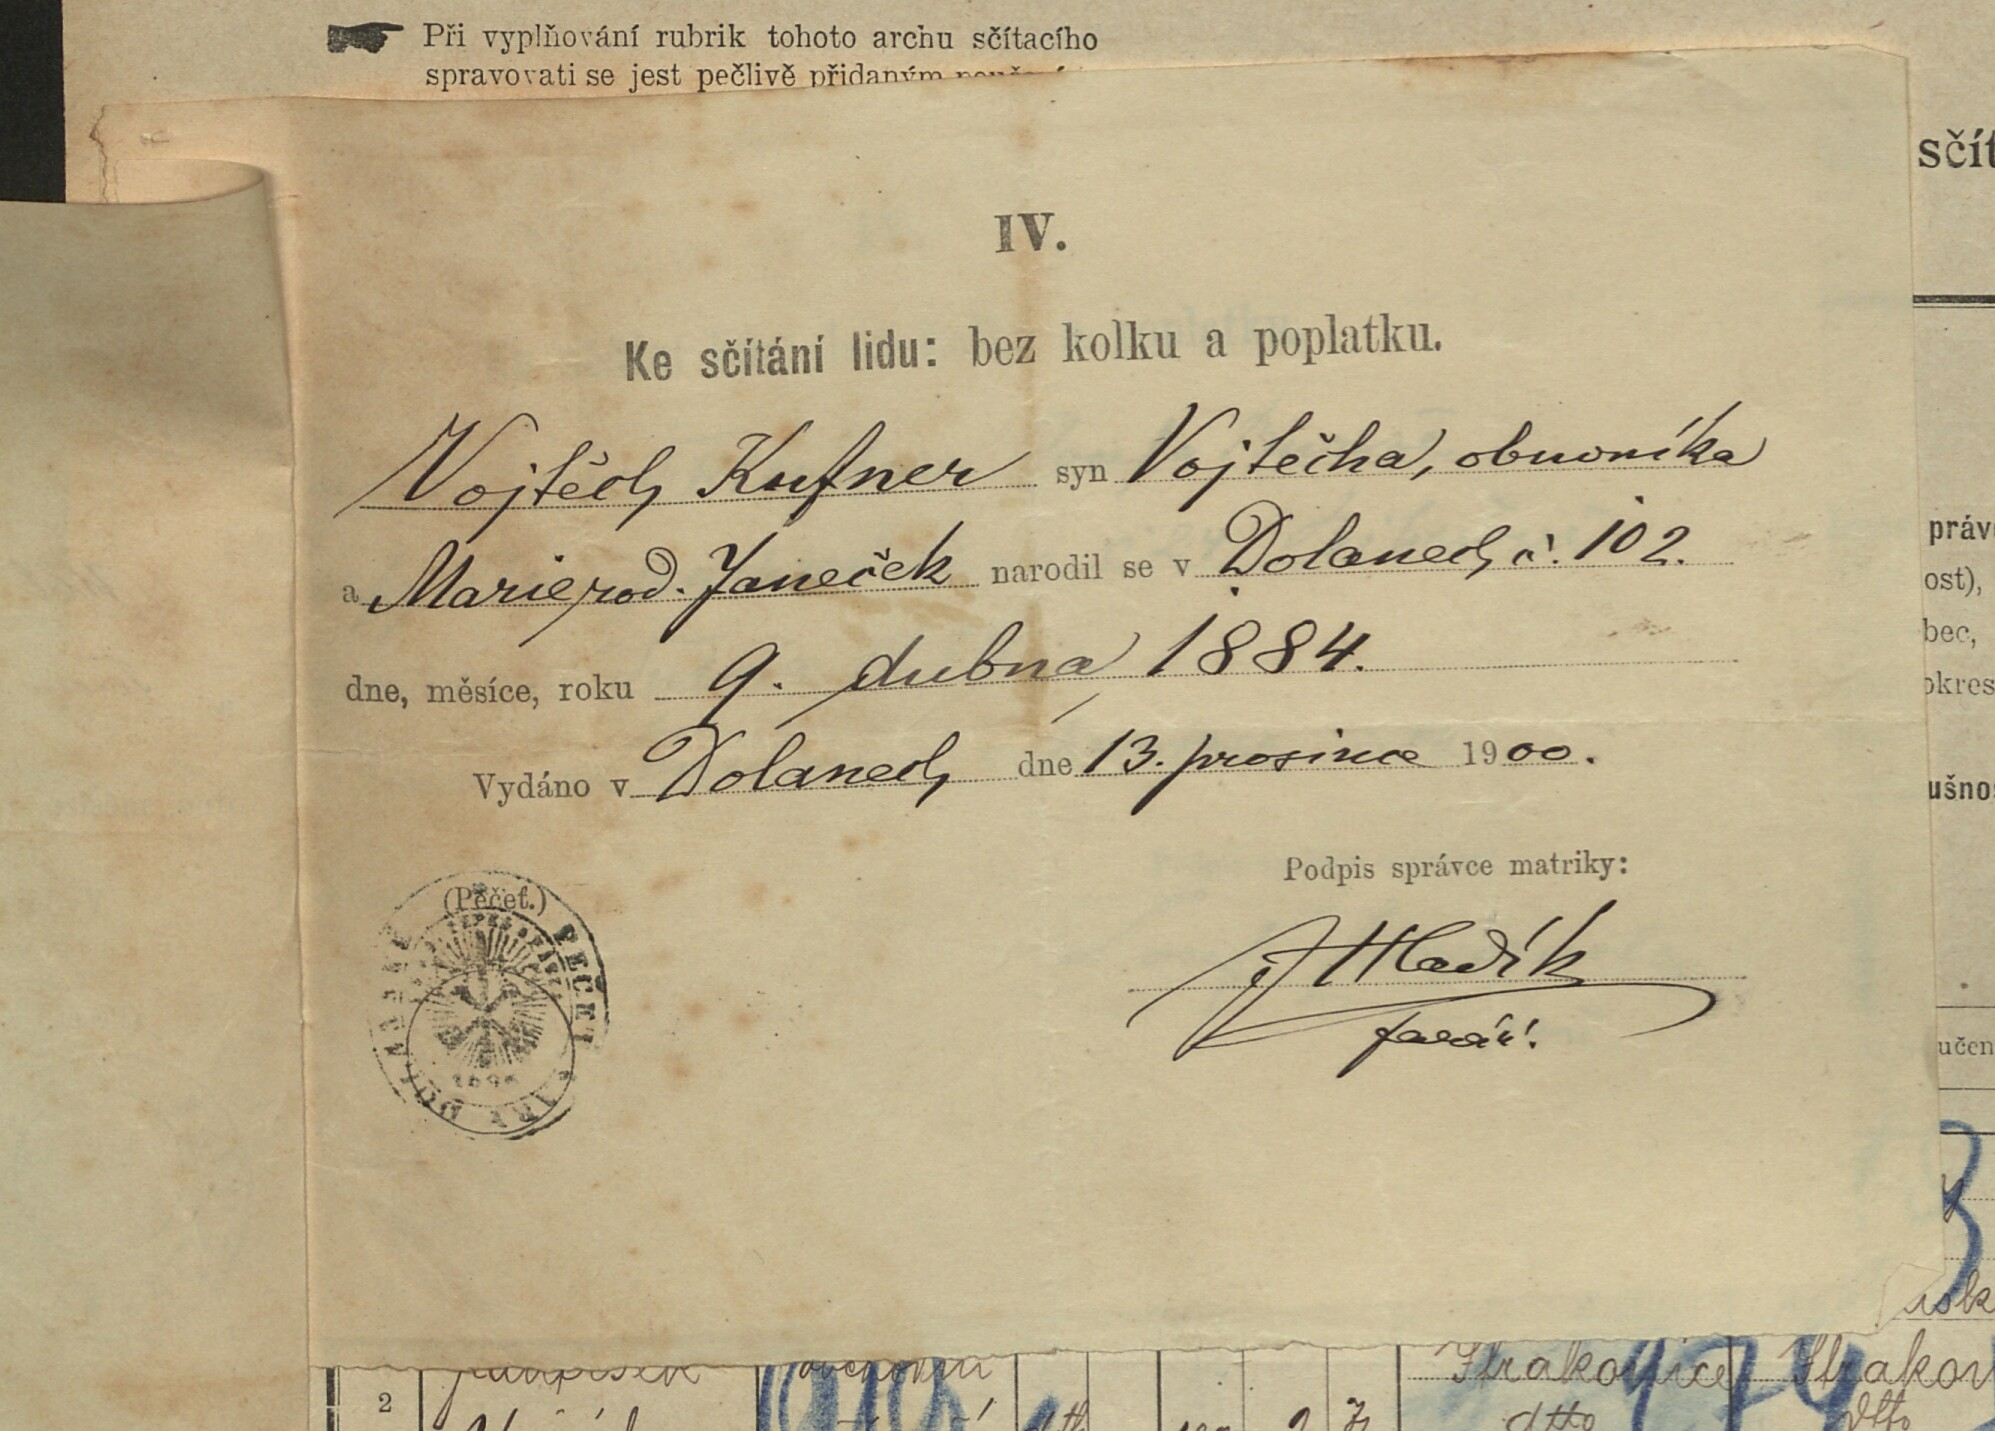 Při vyplňování rubrik tohoto archu sčítacího
spravovati se jest pečlivě přidaným
IV.
Ke sčítání lidu: bez kolku a poplatku.
Vojtěch Kufner syn Vojtěcha, obuvníka
a Marie rod. Janeček narodil se v Dolanech č. 102.
dne, měsíce, roku 9. dubna 1884.
Vydáno v Dolanech dne 13. prosince 1900.
Podpis správce matriky:
(Pečeť.)
PEČEŤ FARY
J Hladík
farář.
sčít
práv
ost),
bec,
okres
ušnos
učen
Strakonice Strakon
2
dtto dtto